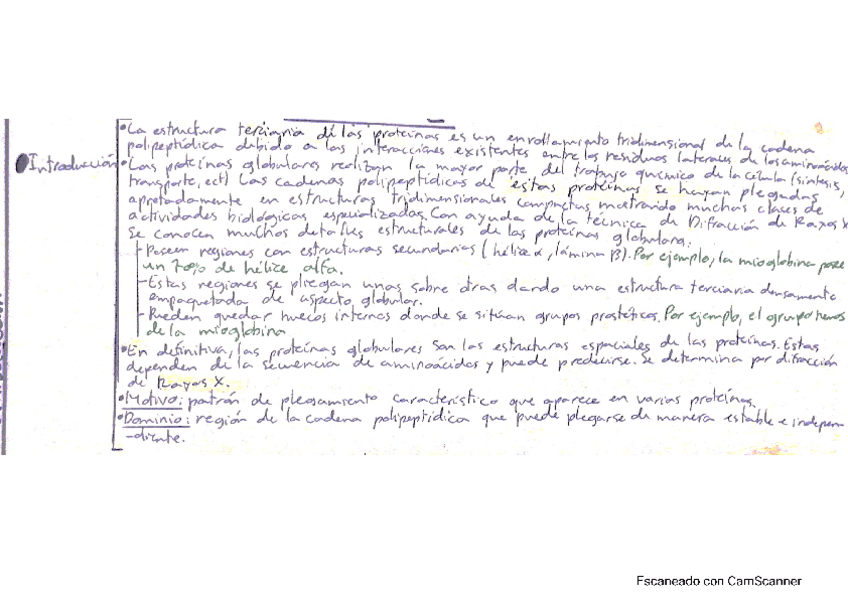 •La estructura terciaria de las proteínas es un enrollamiento tridimensional de la cadena
polipeptídica debido a las interacciones existentes entre los residuos laterales de los aminoácidos
●Introducción
•Las proteínas globulares realizan la mayor parte del trabajo químico de la célula (síntesis,
transporte, ect) Las cadenas polipeptídicas de estas proteínas se hayan plegadas
apretadamente en estructuras tridimensionales compactas mostrando muchas clases de
actividades biológicas especializadas. Con ayuda de la técnica de Difracción de Rayos X
se conocen muchos detalles estructurales de las proteínas globulares:
-Poseen regiones con estructuras secundarias (hélice α, lámina β). Por ejemplo, la mioglobina posee
un 70% de hélice alfa.
-Estas regiones se pliegan unas sobre otras dando una estructura terciaria densamente
empaquetada de aspecto globular.
-Pueden quedar huecos internos donde se sitúan grupos prostéticos. Por ejemplo, el grupo hemo
de la mioglobina
•En definitiva, las proteínas globulares son las estructuras espaciales de las proteínas. Estas
dependen de la secuencia de aminoácidos y puede predecirse. Se determina por difracción
de Rayos X.
•Motivo: patrón de plegamiento característico que aparece en varias proteínas.
•Dominio: región de la cadena polipeptídica que puede plegarse de manera estable e indepen-
-diente.
Escaneado con CamScanner